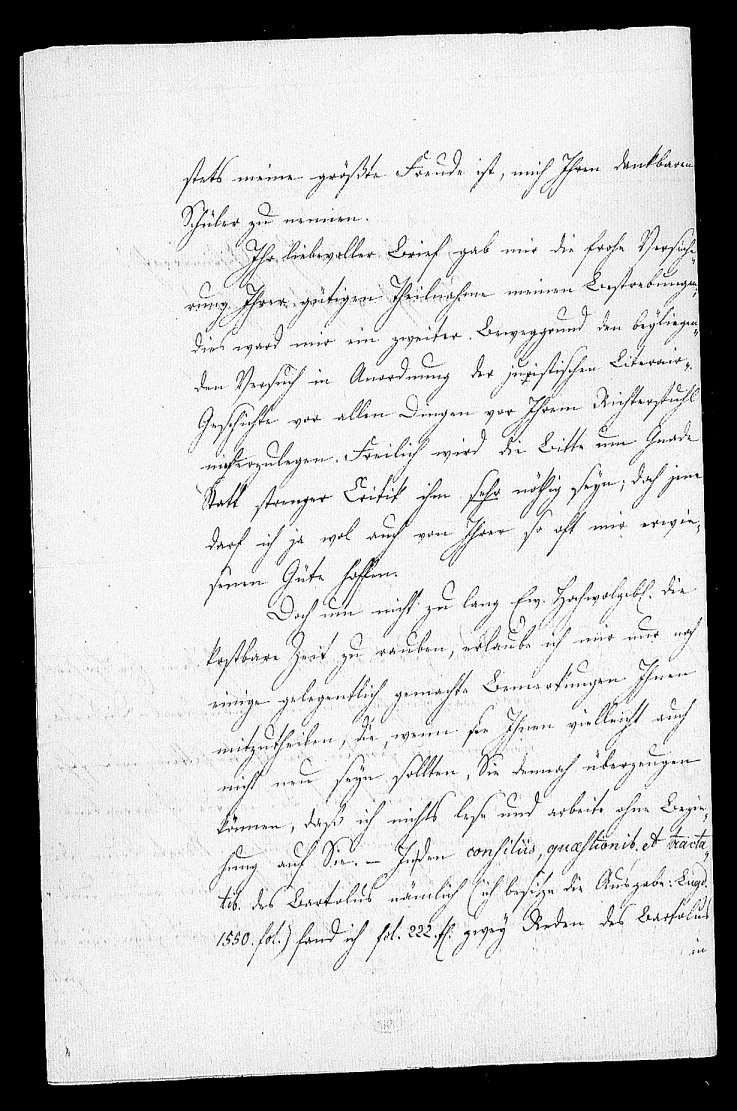 stets meine größte Freude ist, mich Ihren dankbaren
Schüler zu nennen.
Ihr liebevoller Brief gab mir die frohe Versiche-
rung Ihrer gütigen Theilnahme meinen Bestrebungen,
dies ward mir ein zweiter Beweggrund den beyliegen-
den Versuch in Anordnung der juristischen Literair-
Geschichte vor allen Dingen vor Ihrem Richterstuhl
niederzulegen. Freilich wird die Bitte um Gnade
Statt strenger Critik ihm sehr nöthig seyn; doch jene
darf ich ja wol auch von Ihrer so oft mir erwie-
senen Güte hoffen.
Doch um nicht zu lang Ew. Hochwolgebl. die
kostbare Zeit zu rauben, erlaube ich mir nur noch
einige gelegentlich gemachte Bemerkungen Ihnen
mitzutheilen, die, wenn sie Ihnen vielleicht auch
nicht neu seyn sollten, Sie dennoch überzeugen
können, daß ich nichts lese und arbeite ohne Bezie-
hung auf Sie. – In den consiliis, quæstionib. et tracta-
tib. des Bartolus nämlich (ich besitze die Ausgabe: Lugd.
1550. fol.) fand ich fol. 222. ff. zwey Reden des Bartolus
in